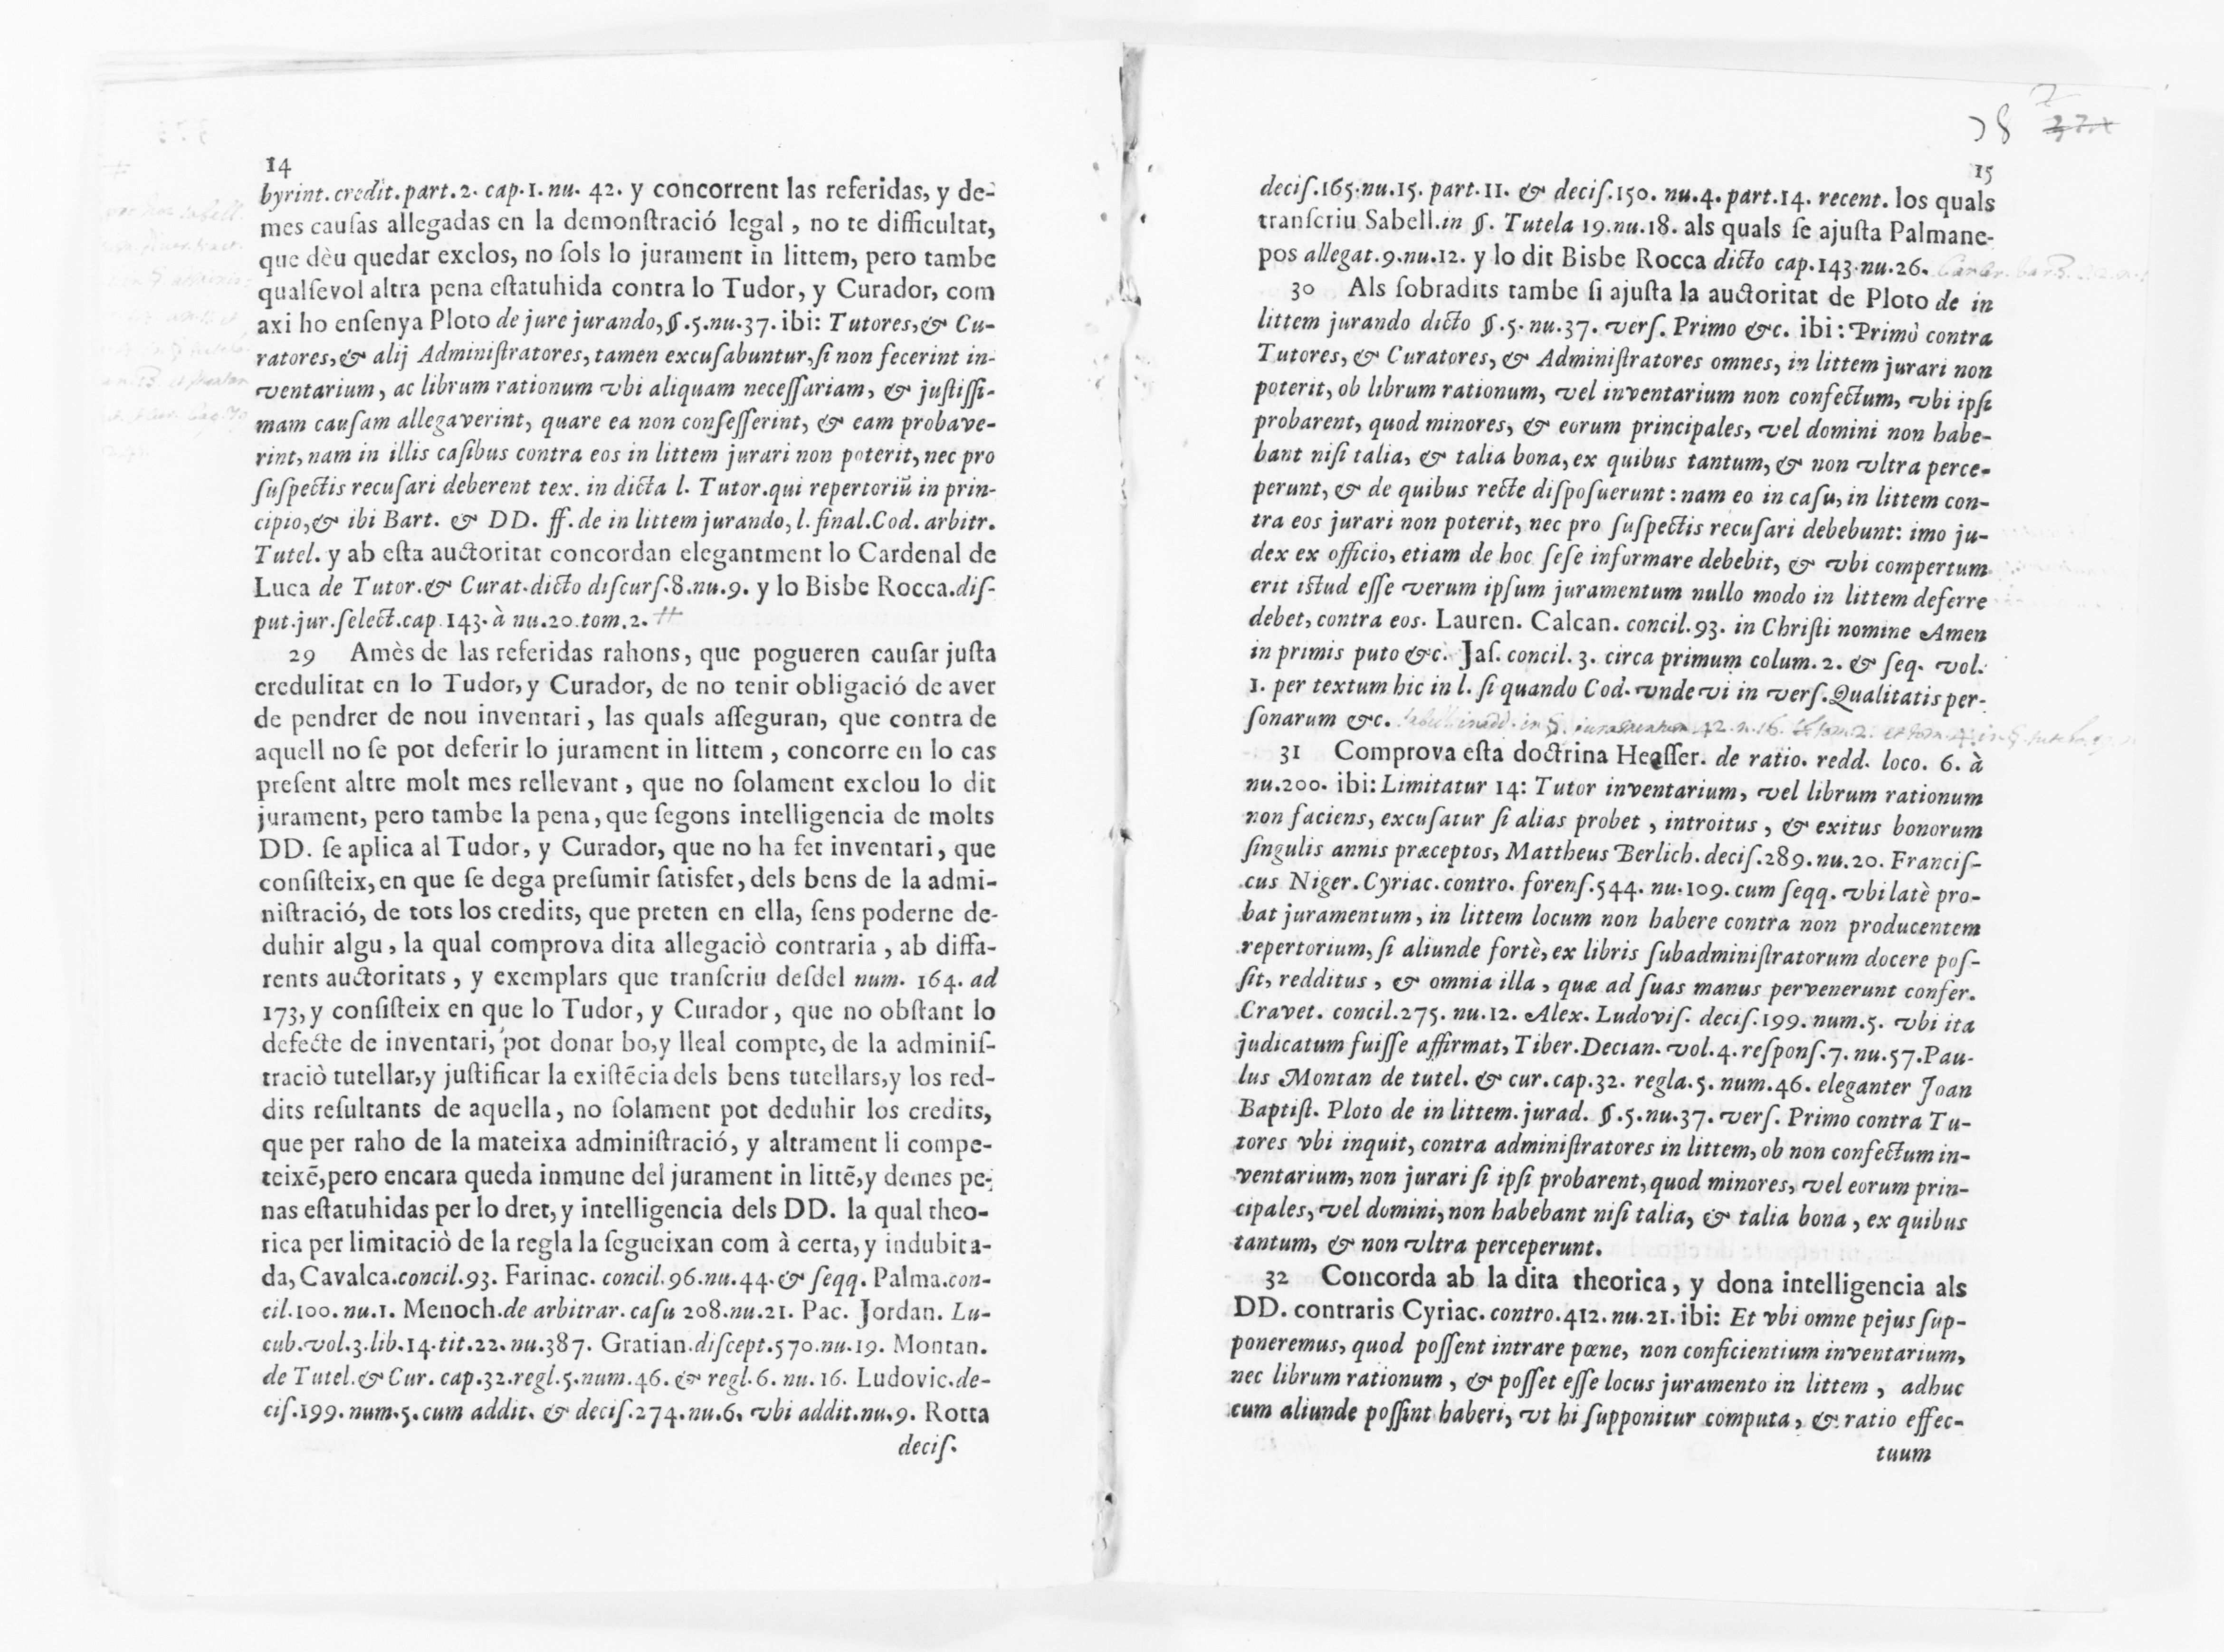 14
byrint. credit. part. 2. cap. 1. nu. 42. y concorrent las referidas, y de-
mes causas allegadas en la demonſtració legal, no te difficultat,
que dèu quedar exclos, no ſols lo jurament in littem, pero tambe
qualſevol altra pena eſtatuhida contra lo Tudor, y Curador, com
axi ho enſenya Ploto de jure jurando, §. 5. nu. 37. ibi: Tutores, & Cu-
ratores, & alij Adminiſtratores, tamen excuſabuntur, ſi non fecerint in-
ventarium, ac librum rationum vbi aliquam neceſſariam, & juſtiſſi-
mam cauſam allegaverint, quare ea non confeſſerint, & eam probave-
rint, nam in illis caſibus contra eos in littem jurari non poterit, nec pro
ſuſpectis recuſari deberent tex. in dicta l. Tutor. qui repertoriũ in prin-
cipio, & ibi Bart. & DD. ff. de in littem jurando, l. final. Cod. arbitr.
Tutel. y ab eſta auctoritat concordan elegantment lo Cardenal de
Luca de Tutor. & Curat. dicto diſcurſ. 8. nu. 9. y lo Bisbe Rocca. diſ-
put. jur. ſelect. cap. 143. à nu. 20. tom. 2. #
29 Amès de las referidas rahons, que pogueren cauſar juſta
credulitat en lo Tudor, y Curador, de no tenir obligació de aver
de pendrer de nou inventari, las quals aſſeguran, que contra de
aquell no ſe pot deferir lo jurament in littem, concorre en lo cas
preſent altre molt mes rellevant, que no ſolament exclou lo dit
jurament, pero tambe la pena, que ſegons intelligencia de molts
DD. ſe aplica al Tudor, y Curador, que no ha fet inventari, que
conſiſteix, en que ſe dega preſumir ſatisfet, dels bens de la admi-
niſtració, de tots los credits, que preten en ella, ſens poderne de-
duhir algu, la qual comprova dita allegaciò contraria, ab diffa-
rents auctoritats, y exemplars que tranſcriu deſdel num. 164. ad
173, y conſiſteix en que lo Tudor, y Curador, que no obſtant lo
defecte de inventari, pot donar bo, y lleal compte, de la adminiſ-
traciò tutellar, y juſtificar la exiſtẽcia dels bens tutellars, y los red-
dits reſultants de aquella, no ſolament pot deduhir los credits,
que per raho de la mateixa adminiſtració, y altrament li compe-
teixẽ, pero encara queda inmune del jurament in littẽ, y demes pe-
nas eſtatuhidas per lo dret, y intelligencia dels DD. la qual theo-
rica per limitaciò de la regla la ſegueixan com à certa, y indubita-
da, Cavalca. concil. 93. Farinac. concil. 96. nu. 44. & ſeqq. Palma. con-
cil. 100. nu. 1. Menoch. de arbitrar. caſu 208. nu. 21. Pac. Jordan. Lu-
cub. vol. 3. lib. 14. tit. 22. nu. 387. Gratian. diſcept. 570. nu. 19. Montan.
de Tutel. & Cur. cap. 32. regl. 5. num. 46. & regl. 6. nu. 16. Ludovic. de-
ciſ. 199. num. 5. cum addit. & deciſ. 274. nu. 6. vbi addit. nu. 9. Rotta
deciſ.
78
15
deciſ. 165. nu. 15. part. 11. & deciſ. 150. nu. 4. part. 14. recent. los quals
tranſcriu Sabell. in §. Tutela 19. nu. 18. als quals ſe ajuſta Palmane-
pos allegat. 9. nu. 12. y lo dit Bisbe Rocca dicto cap. 143. nu. 26.
30 Als ſobradits tambe ſi ajuſta la auctoritat de Ploto de in
littem jurando dicto §. 5. nu. 37. verſ. Primo &c. ibi: Primò contra
Tutores, & Curatores, & Adminiſtratores omnes, in littem jurari non
poterit, ob librum rationum, vel inventarium non confectum, vbi ipſi
probarent, quod minores, & eorum principales, vel domini non habe-
bant niſi talia, & talia bona, ex quibus tantum, & non vltra perce-
perunt, & de quibus recte diſpoſuerunt: nam eo in caſu, in littem con-
tra eos jurari non poterit, nec pro ſuſpectis recuſari debebunt: imo ju-
dex ex officio, etiam de hoc ſeſe informare debebit, & vbi compertum
erit istud eſſe verum ipſum juramentum nullo modo in littem deferre
debet, contra eos. Lauren. Calcan. concil. 93. in Chriſti nomine Amen
in primis puto &c. Jaſ. concil. 3. circa primum colum. 2. & ſeq. vol.
1. per textum hic in l. ſi quando Cod. vnde vi in verſ. Qualitatis per-
ſonarum &c.
31 Comprova eſta doctrina Heaſſer. de ratio. redd. loco. 6. à
nu. 200. ibi: Limitatur 14: Tutor inventarium, vel librum rationum
non faciens, excuſatur ſi alias probet, introitus, & exitus bonorum
ſingulis annis præceptos, Mattheus Berlich. deciſ. 289. nu. 20. Franciſ-
cus Niger. Cyriac. contro. forenſ. 544. nu. 109. cum ſeqq. vbi latè pro-
bat juramentum, in littem locum non habere contra non producentem
repertorium, ſi aliunde fortè, ex libris ſubadminiſtratorum docere poſ-
ſit, redditus, & omnia illa, quæ ad ſuas manus pervenerunt confer.
Cravet. concil. 275. nu. 12. Alex. Ludoviſ. deciſ. 199. num. 5. vbi ita
judicatum fuiſſe affirmat, Tiber. Decian. vol. 4. reſponſ. 7. nu. 57. Pau-
lus Montan de tutel. & cur. cap. 32. regla. 5. num. 46. eleganter Joan
Baptiſt. Ploto de in littem. jurad. §. 5. nu. 37. verſ. Primo contra Tu-
tores vbi inquit, contra adminiſtratores in littem, ob non confectum in-
ventarium, non jurari ſi ipſi probarent, quod minores, vel eorum prin-
cipales, vel domini, non habebant niſi talia, & talia bona, ex quibus
tantum, & non vltra perceperunt.
32 Concorda ab la dita theorica, y dona intelligencia als
DD. contraris Cyriac. contro. 412. nu. 21. ibi: Et vbi omne pejus ſup-
poneremus, quod poſſent intrare pœne, non conficientium inventarium,
nec librum rationum, & poſſet eſſe locus juramento in littem, adhuc
cum aliunde poſſint haberi, vt hi ſupponitur computa, & ratio effec-
tuum